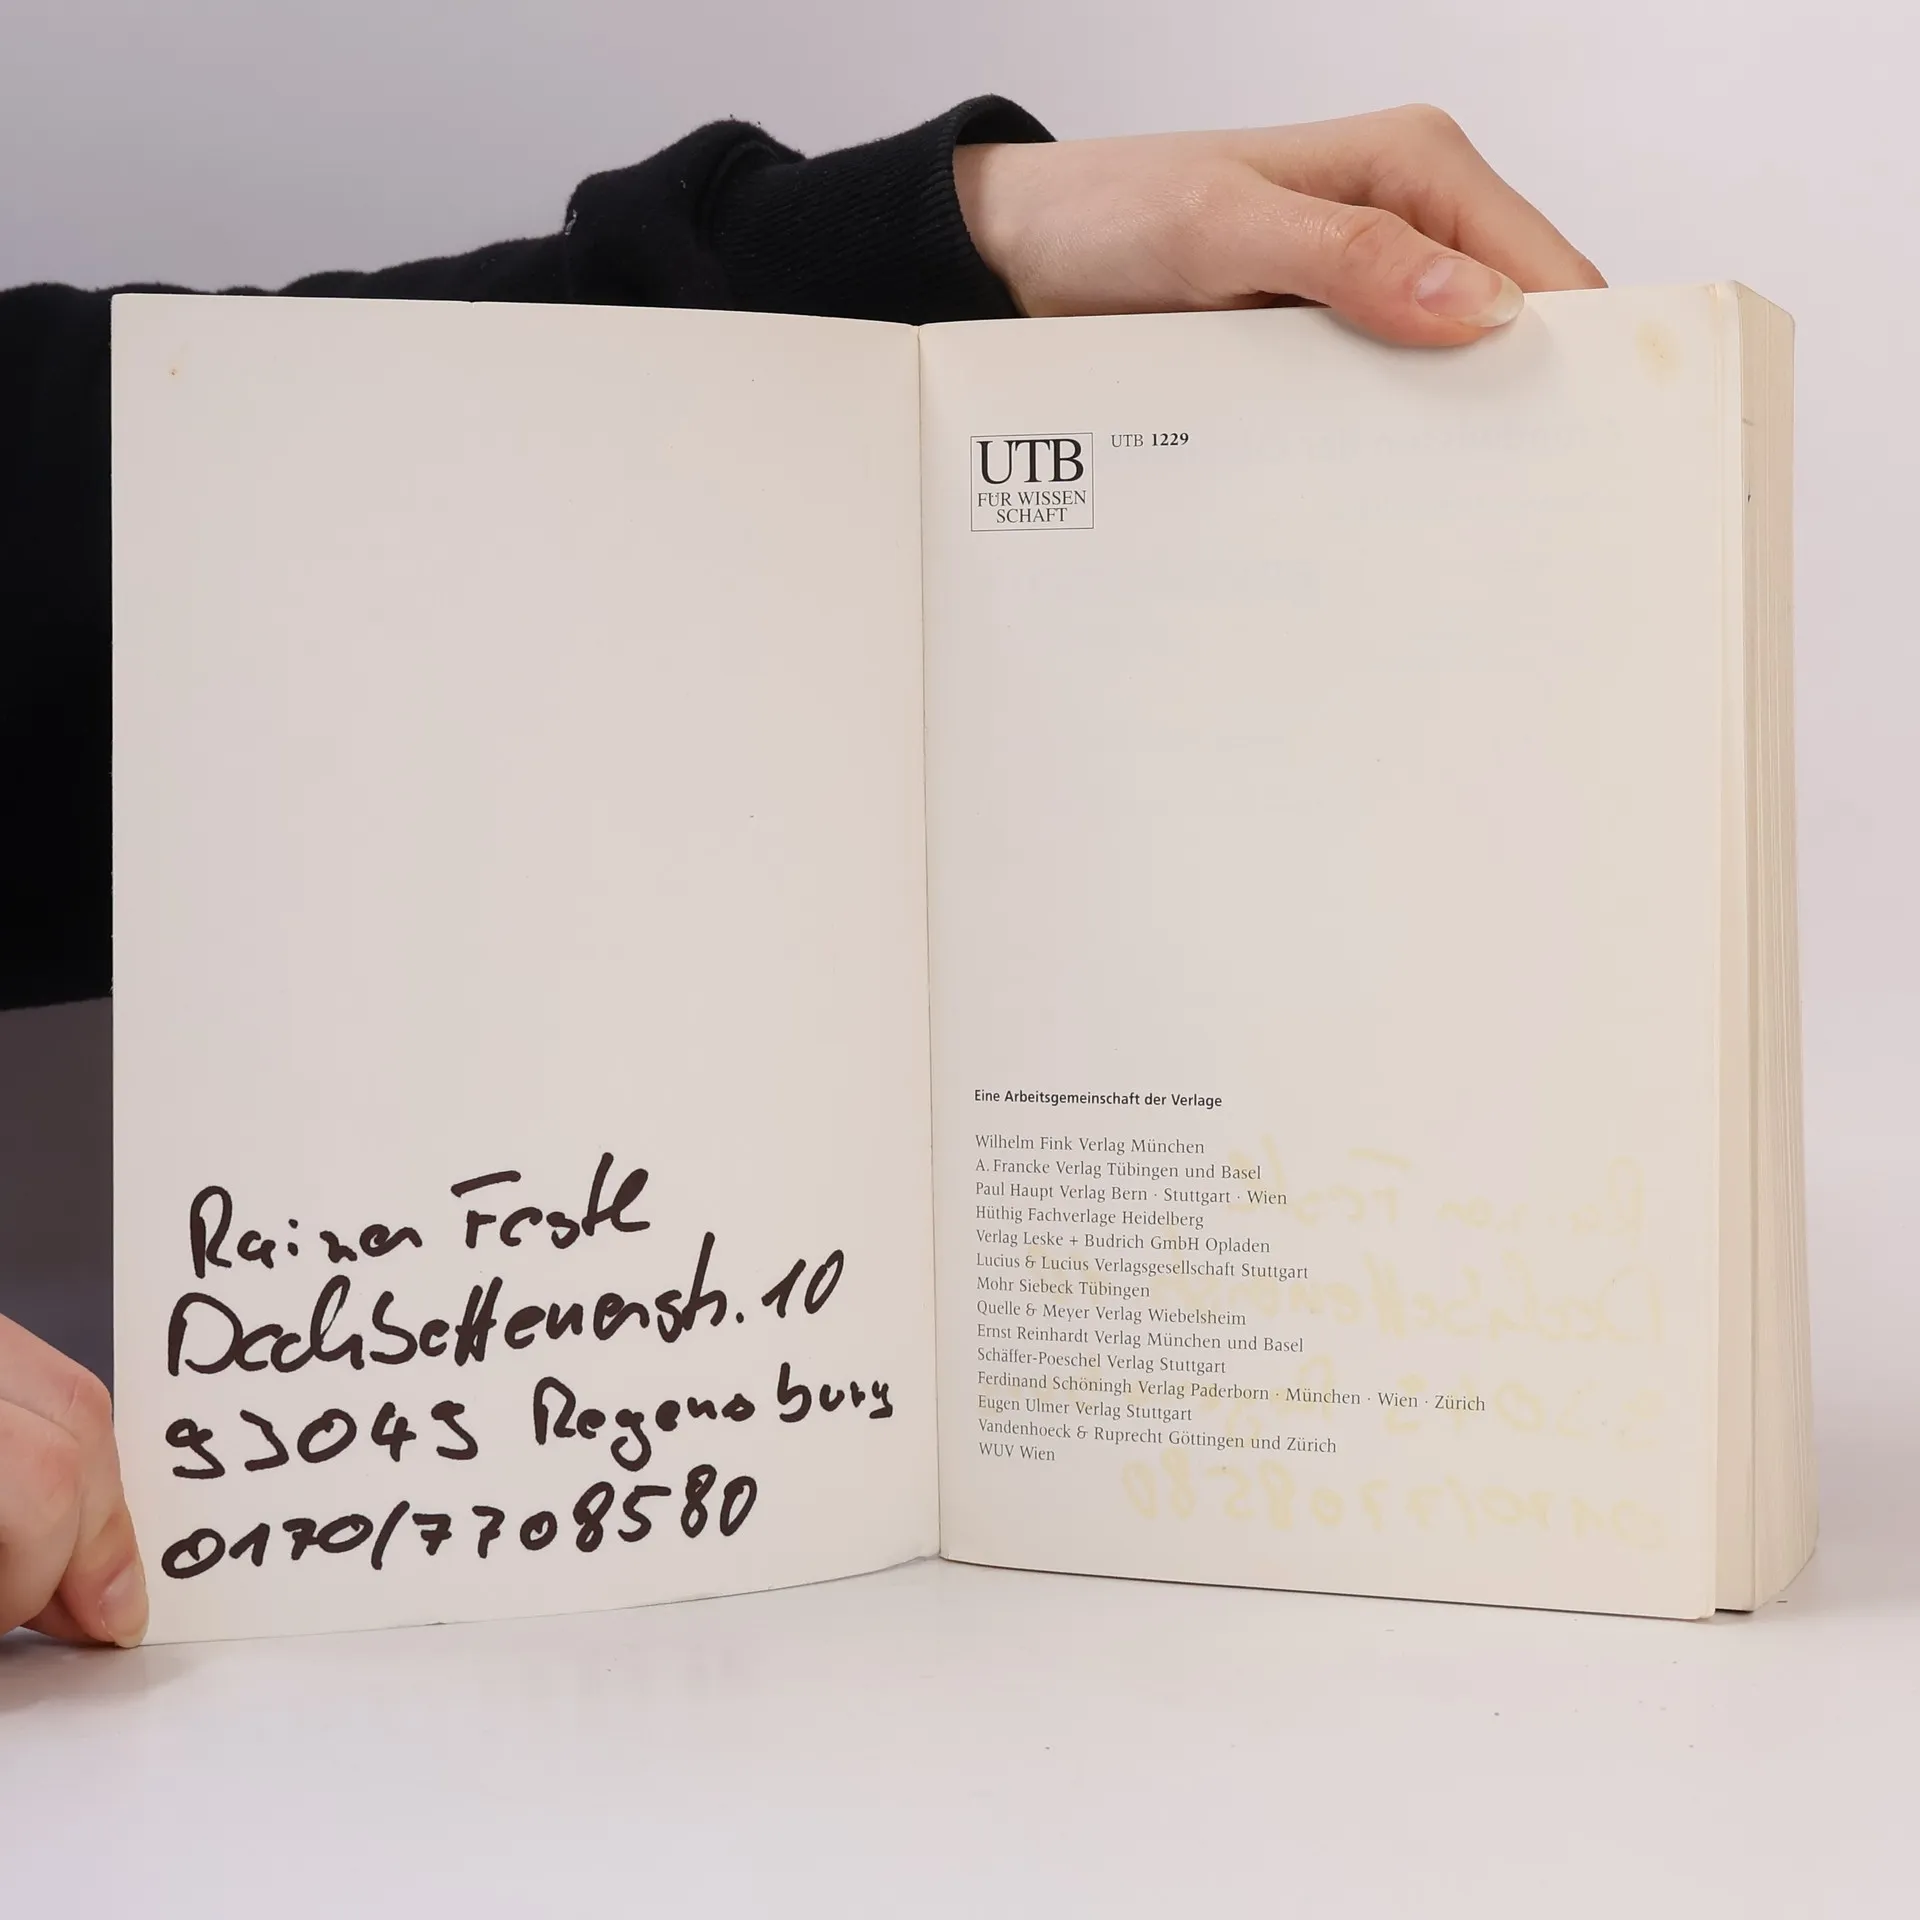 Rainer Festl
Dechbettenerstr. 10
93049 Regensburg
0170/7708580
UTB
FÜR WISSEN
SCHAFT
UTB 1229
Eine Arbeitsgemeinschaft der Verlage
Wilhelm Fink Verlag München
A. Francke Verlag Tübingen und Basel
Paul Haupt Verlag Bern · Stuttgart · Wien
Hüthig Fachverlage Heidelberg
Verlag Leske + Budrich GmbH Opladen
Lucius & Lucius Verlagsgesellschaft Stuttgart
Mohr Siebeck Tübingen
Quelle & Meyer Verlag Wiebelsheim
Ernst Reinhardt Verlag München und Basel
Schäffer-Poeschel Verlag Stuttgart
Ferdinand Schöningh Verlag Paderborn · München · Wien · Zürich
Eugen Ulmer Verlag Stuttgart
Vandenhoeck & Ruprecht Göttingen und Zürich
WUV Wien